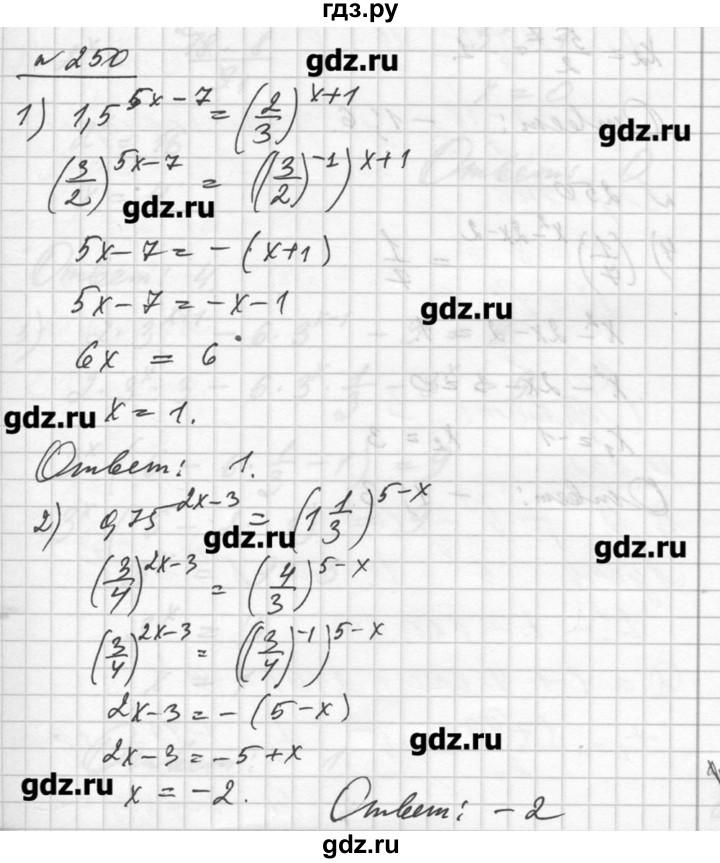 гдз.ру
№ 250
gdz.ru
1) 1,5^(5x-7) = (2/3)^(x+1)
gdz.ru
(3/2)^(5x-7) = ((3/2)^(-1))^(x+1)
gdz.ru
5x-7 = -(x+1)
5x-7 = -x-1
gdz.ru
6x = 6
gdz.ru
x = 1.
Ответ: 1.
2) 0,75^(2x-3) = (1 1/3)^(5-x)
gdz.ru
gdz.ru
(3/4)^(2x-3) = (4/3)^(5-x)
(3/4)^(2x-3) = ((3/4)^(-1))^(5-x)
2x-3 = -(5-x)
gdz.ru
2x-3 = -5+x
gdz.ru
x = -2.
Ответ: -2
gdz.ru